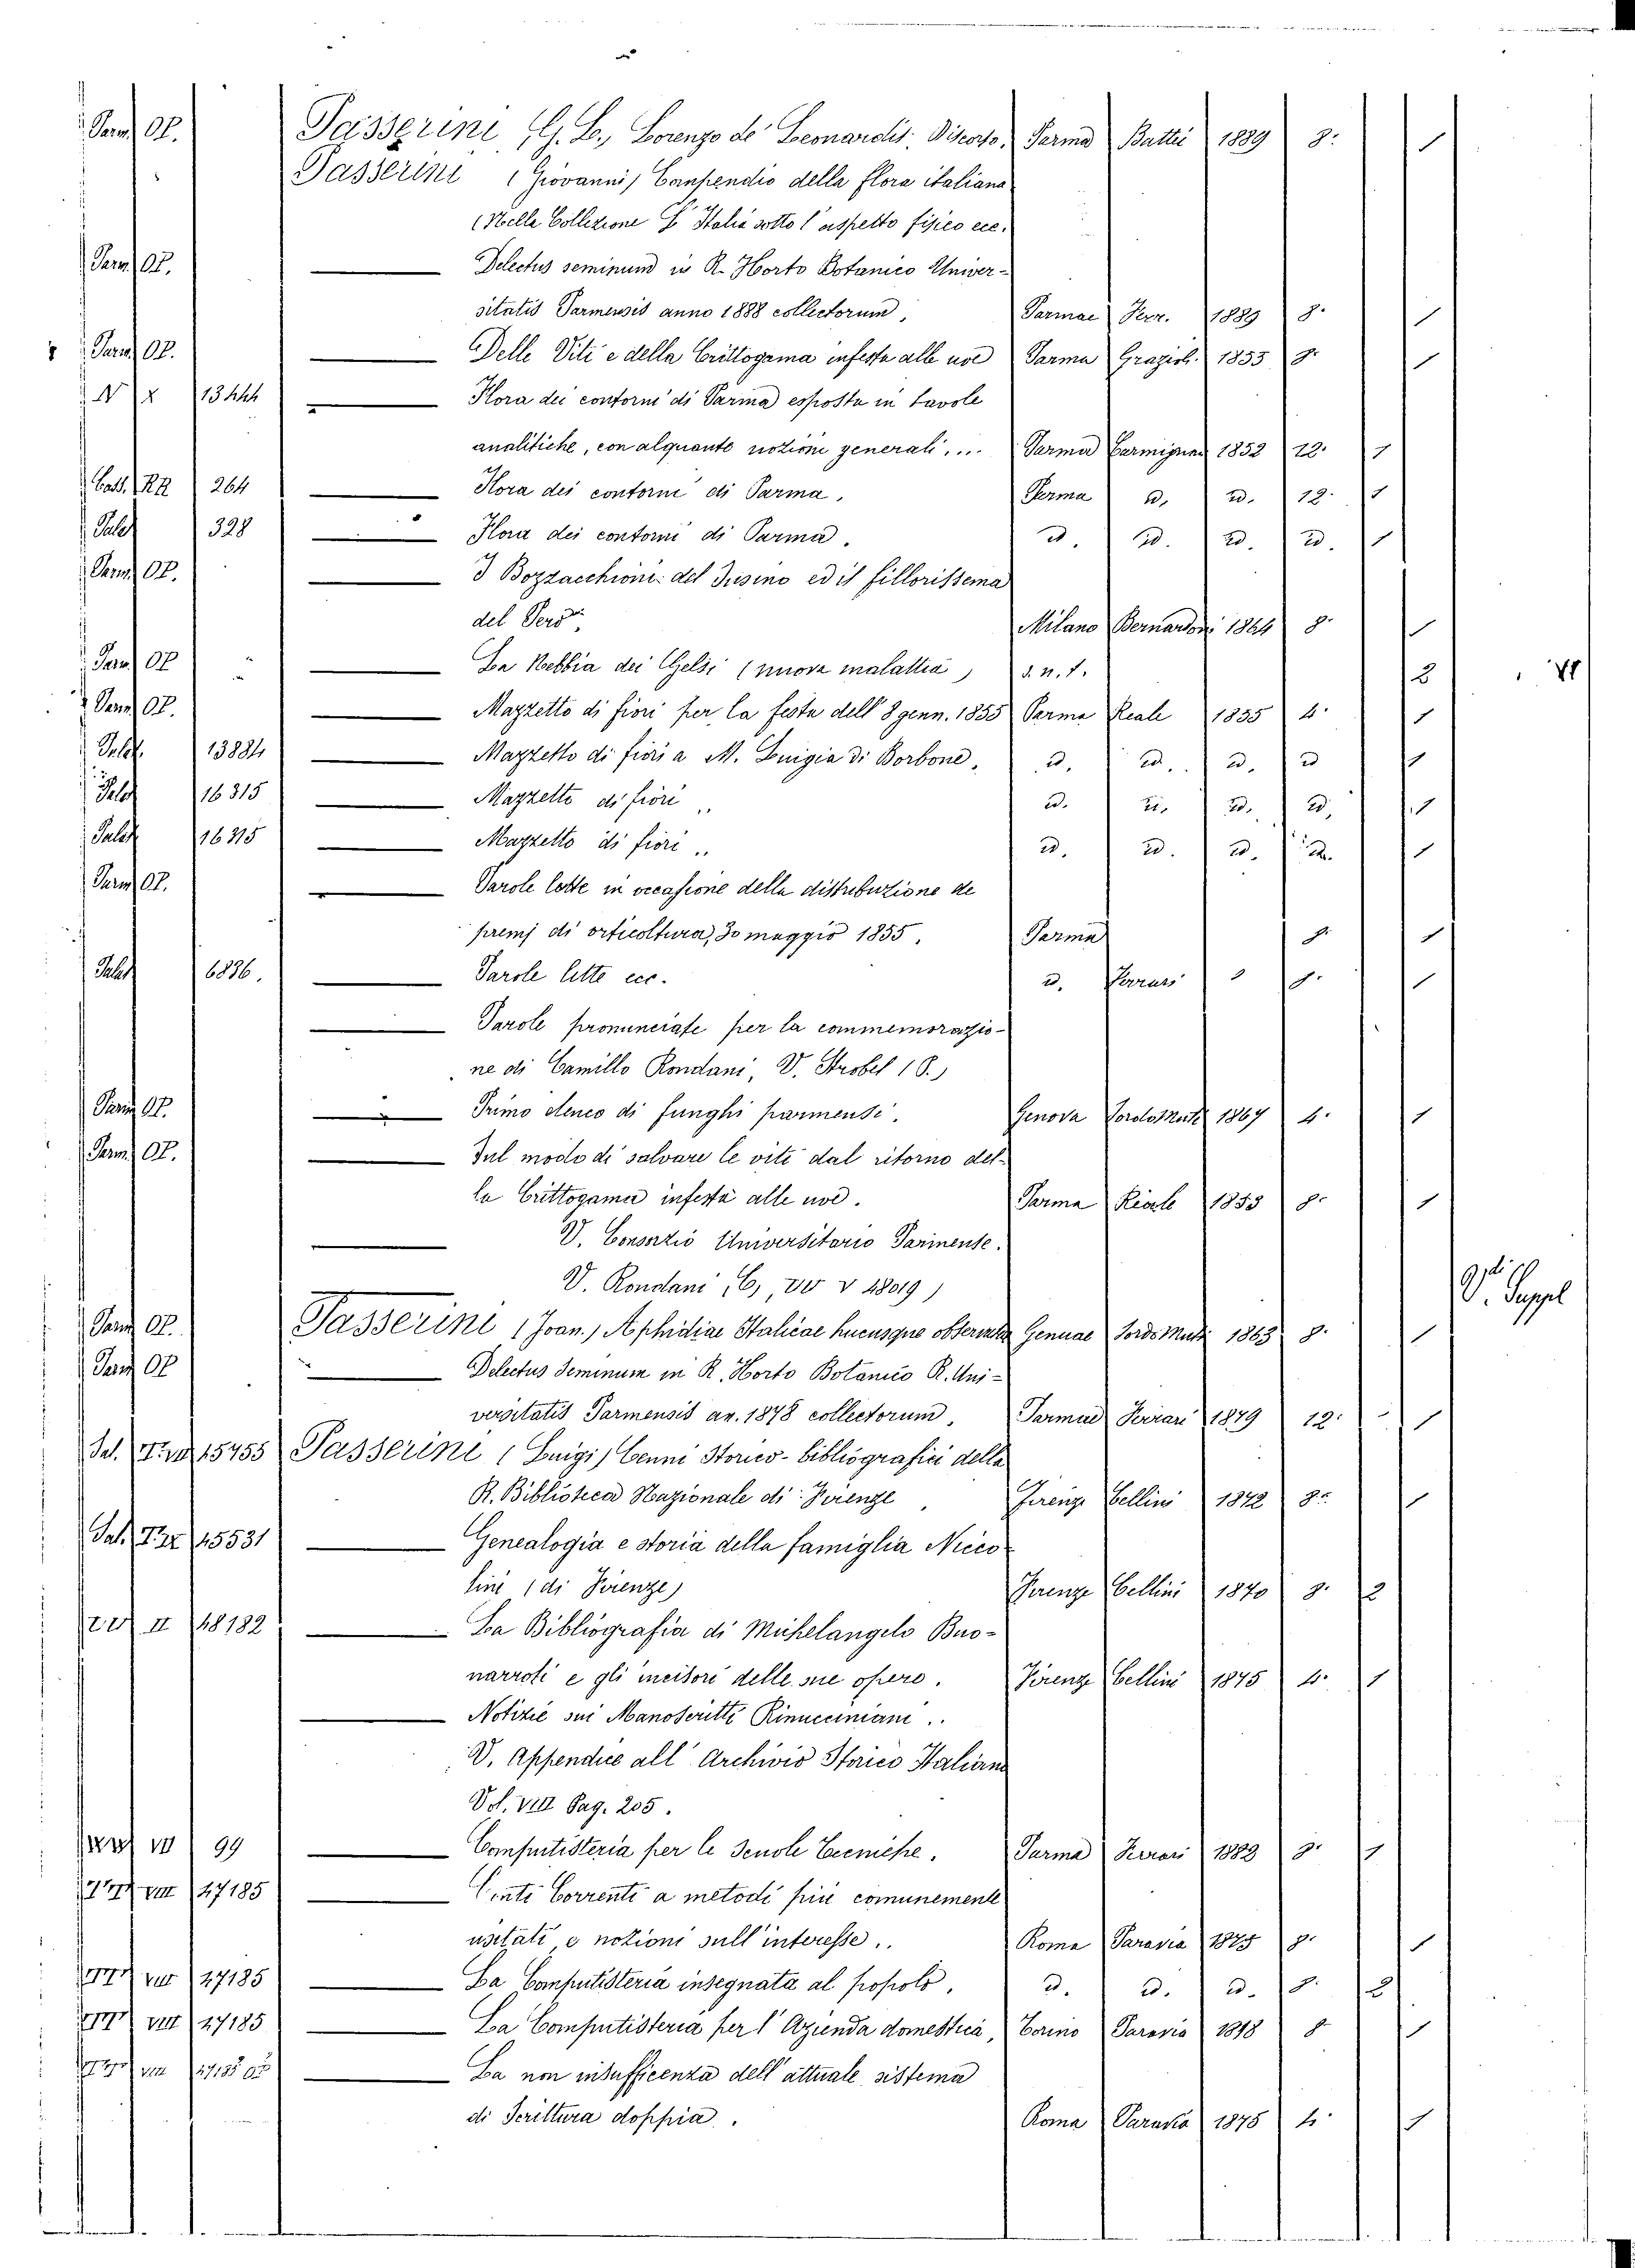 Parm. OP. Passerini (G. B., Lorenzo de' Leonardis. Discorso. Parma Battei 1889 8. 1
Passerini (Giovanni) Compendio della flora italiana
(Nelle Collezione L'Italia sotto l'aspetto fisico ecc.
Parm. OP. Delectus seminum in R. Horto Botanico Univer-
sitatis Parmensis anno 1888 collectorum, Parmae Ferr. 1889 8. 1
Parm. OP. Delle Viti e della Crittogama infesta alle uve Parma Grazioli 1853 8. 1
N X 13444 Flora dei contorni di Parma esposta in tavole
analitiche, con alquante nozioni generali, ... Parma Carmignani 1852 12. 1
Catt. RR 264 Flora dei contorni di Parma, Parma id. id. 12. 1
Palat 328 Flora dei contorni di Parma. id. id. id. id. 1
Parm. OP. I Bozzacchioni del Susino ed il fillorissema
del Però, Milano Bernardoni 1864 8. 1
Parm. OP La Nebbia dei Gelsi (nuova malattia) s. n. t. 2
Parm. OP. Mazzetto di fiori per la festa dell' 8 genn. 1855 Parma Reale 1855 4. 1
Palat. 13884 Mazzetto di fiori a M. Luigia di Borbone, id. id. id. id 1
Palat 16315 Mazzetto di fiori .. id. id. id. id. 1
Palat 16315 Mazzetto di fiori .. id. id. id. id. 1
Parm. OP. Parole lette in occasione della distribuzione de
premj di orticoltura, 30 maggio 1855. Parma 8. 1
Palat 6836. Parole lette ecc. id. Ferrari 8. 1
Parole pronunciate per la commemorazio-
ne di Camillo Rondani, V. Strobel (P.)
Parm. OP. Primo elenco di funghi parmensi. Genova Sordomuti 1867 4. 1
Parm. OP. Sul modo di salvare le viti dal ritorno del-
la Crittogama infesta alle uve. Parma Reale 1853 8. 1
V. Consorzio Universitario Parmense.
V. Rondani (C), V 48019)
V. Suppl
Parm. OP. Passerini (Joan.) Aphididae Italicae hucusque observatae Genuae Sordo Muti 1863 8. 1
Parm. OP Delectus Seminum in R. Horto Botanico R. Uni-
versitatis Parmensis an. 1878 collectorum, Parmae Ferrari 1879 12. 1
Sal. 15755 Passerini (Luigi) Cenni Storico-bibliografici della
R. Biblioteca Nazionale di Firenze, Firenze Cellini 1872 8. 1
Sal. 15531 Genealogia e storia della famiglia Nicco-
lini (di Firenze) Firenze Cellini 1870 8. 2
II 48182 La Bibliografia di Michelangelo Buo-
narroti e gli incisori delle sue opere. Firenze Cellini 1875 4. 1
Notizie sui Manoscritti Rinucciniani..
V. Appendice all' Archivio Storico Italiano
Vol. VIII Pag. 205.
VII 99 Computisteria per le Scuole Tecniche. Parma Ferrari 1883 8. 1
VIII 27185 Conti Correnti a metodi più comunemente
usitati e nozioni sull'interesse.. Roma Paravia 1875 8. 1
VIII 27185 La Computisteria insegnata al popolo, id. id. id. 8. 2
VIII 27185 La Computisteria per l'Azienda domestica, Torino Paravia 1878 8 1
VIII 27185 La non insufficenza dell'attuale sistema
di Scrittura doppia. Roma Paravia 1875 4. 1